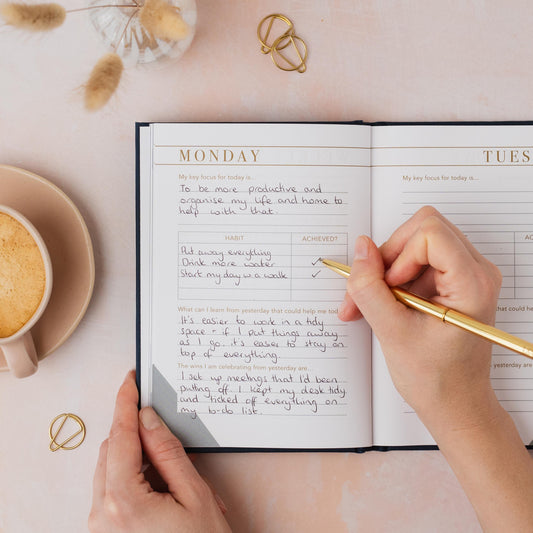 MONDAY
My key focus for today is...
To be more productive and
organise my life and home to
help with that.
HABIT ACHIEVED?
Put away everything
Drink more water
Start my day w a walk
What can I learn from yesterday that could help me tod
It's easier to work in a tidy
space - if I put things away
as I go.. it's easier to stay on
top of everything.
The wins I am celebrating from yesterday are...
I set up meetings that I'd been
putting off I kept my desk tidy
and ticked off everything on
my to-do list.
TUES
My key focus for today is...